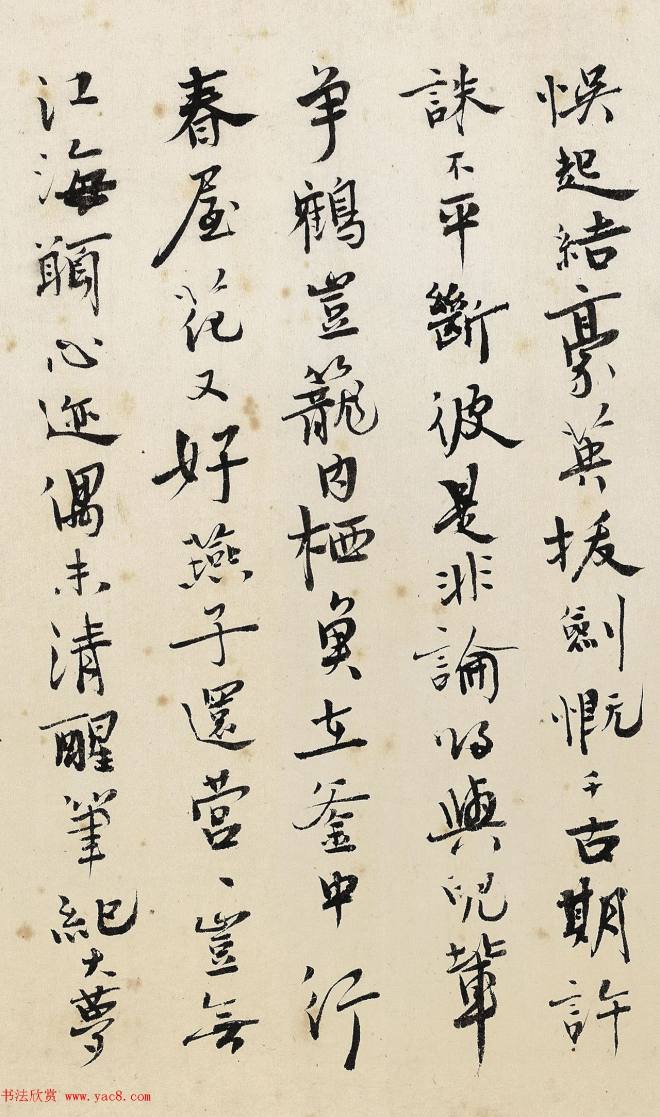 悞起結豪英拔劍慨千古期許
誅不平斷彼是非論為與兒輩
爭鶴豈籠內栖魚在釜中行
春屋花又好燕子還營、豈無
江海願心迹偶未清醒筆紀大夢
书法欣赏 www.yac8.com